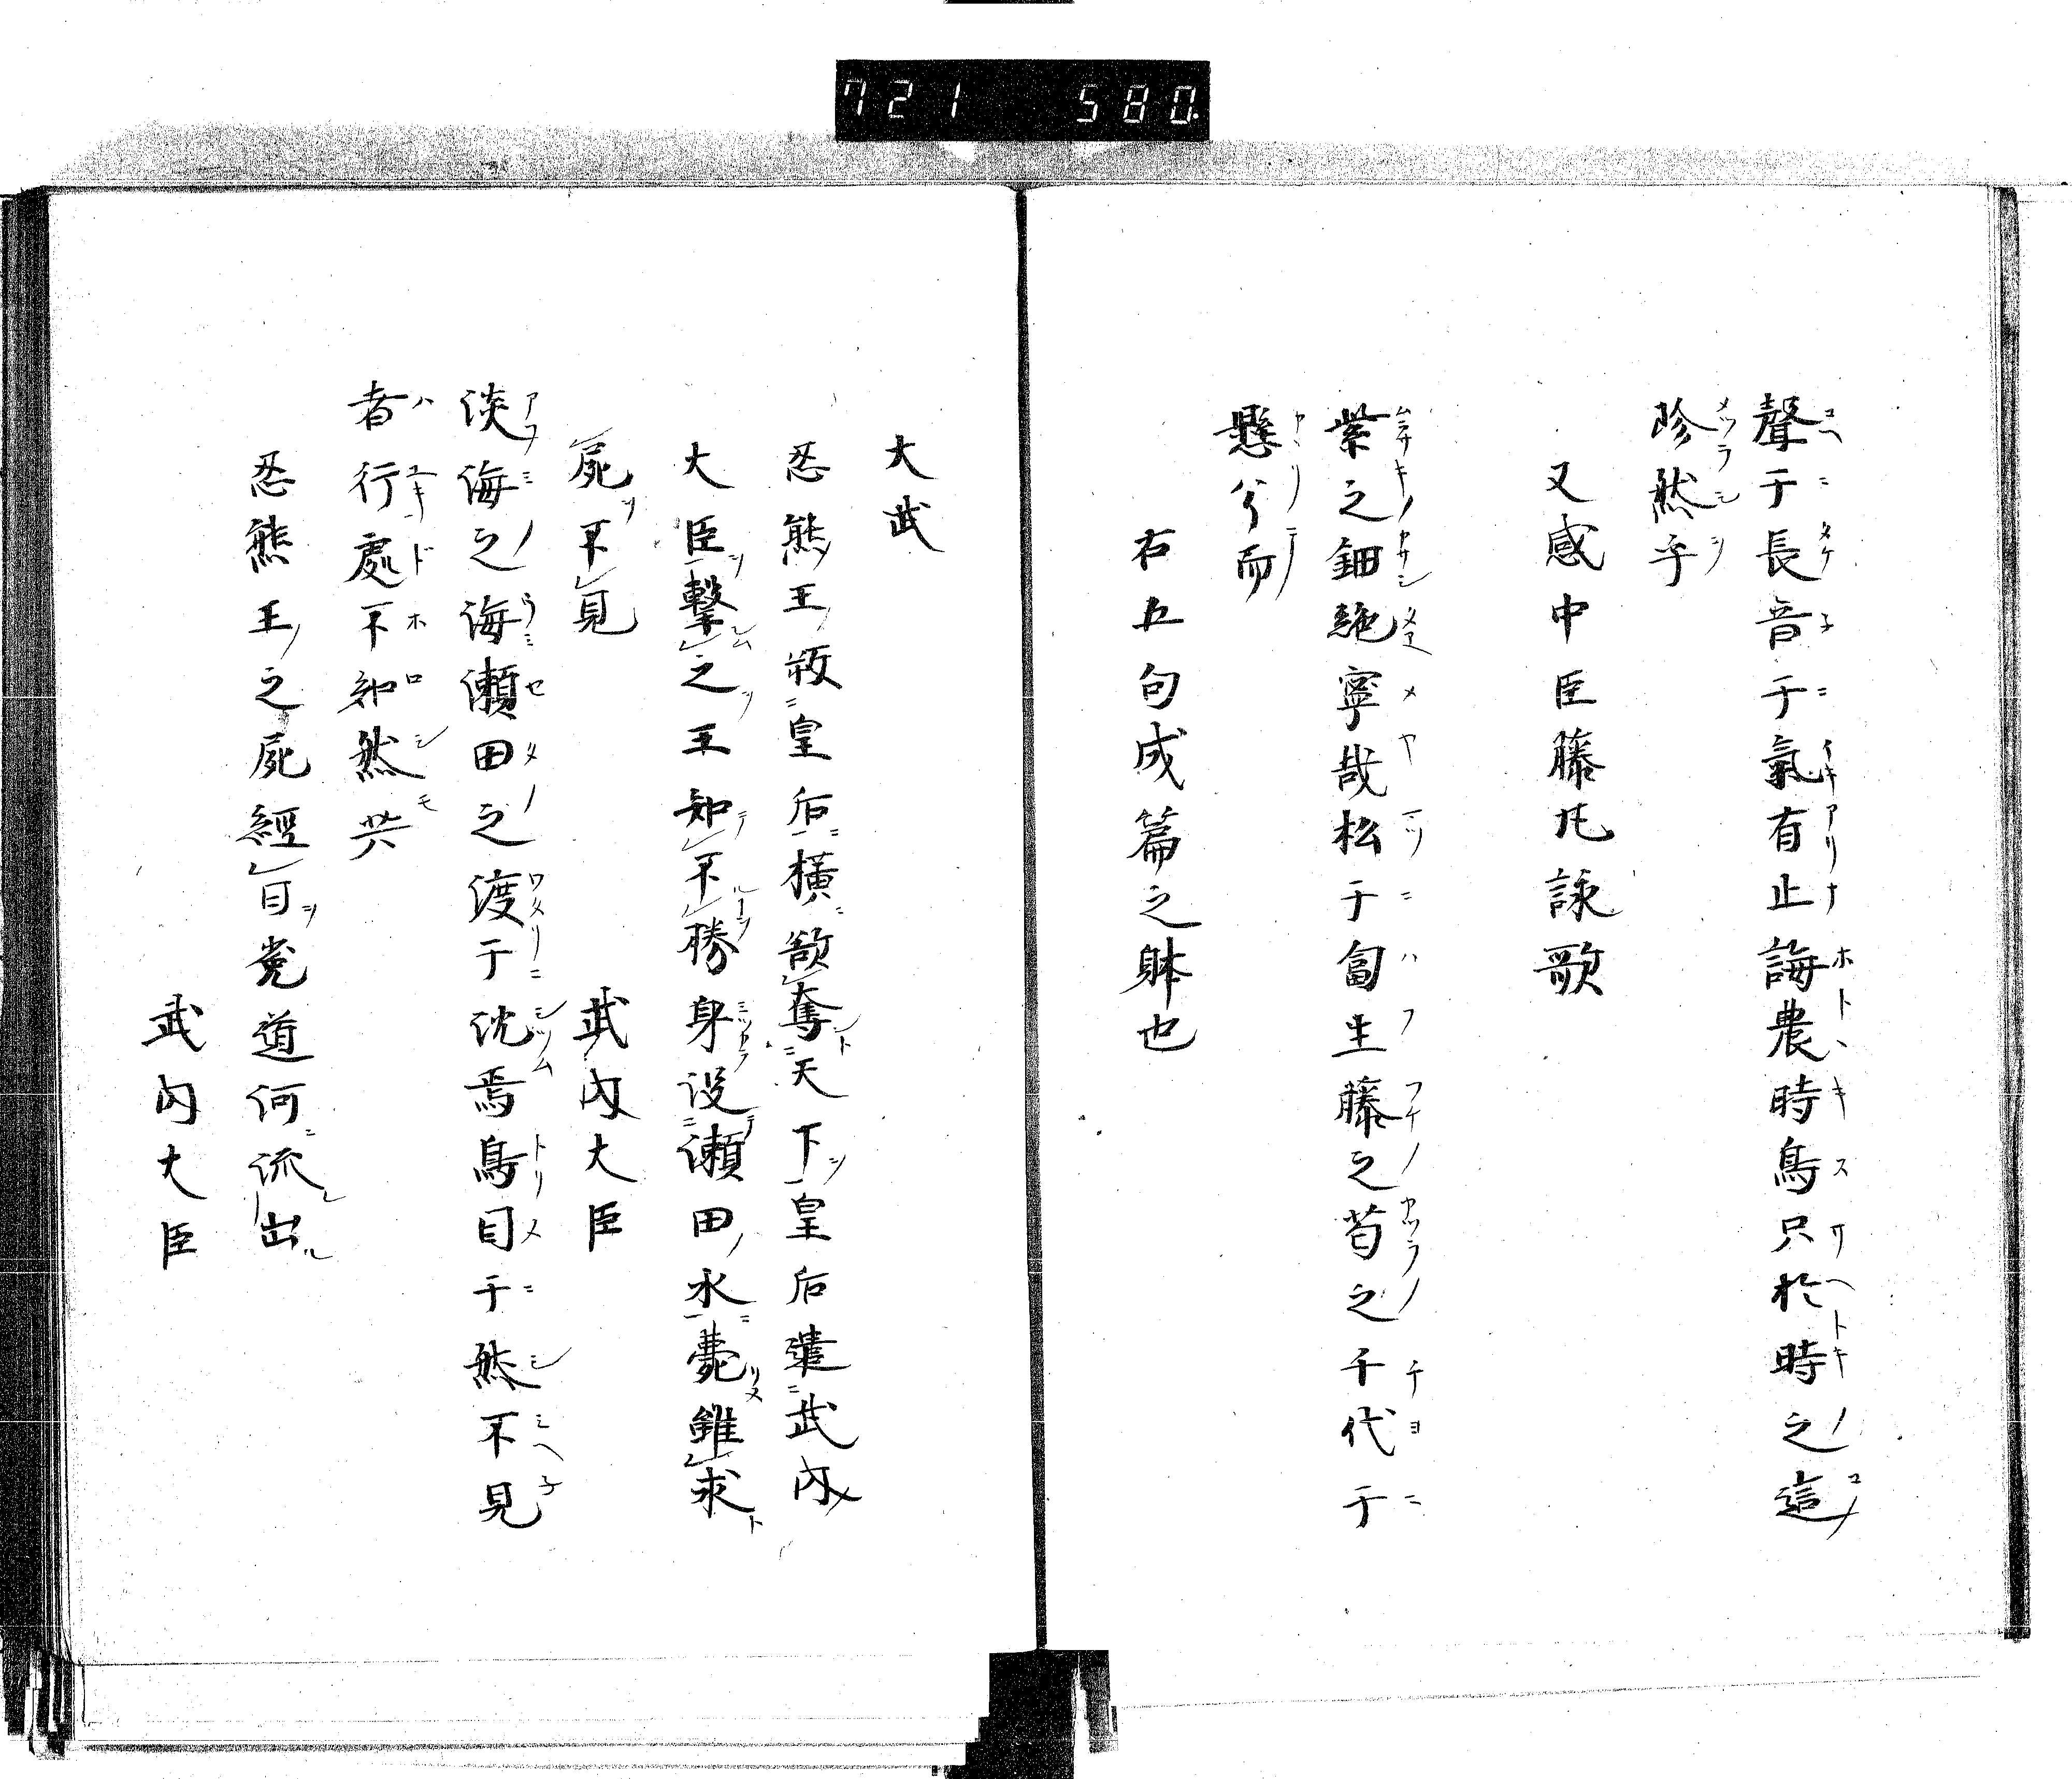 721 580
聲于長音于氣有止誨農時鳥只於時之這
珍然乎
又感中臣藤氏詠歌
紫之鈿艶寧哉松于匐生藤之荀之千代于
懸兮而
右五句成篇之躰也
大武
忍熊王敀皇后橫欲奪天下皇后遣武内
大臣擊之王知不勝身投瀬田水薨雖求
屍不見
武内大臣
淡海之海瀬田之渡于沈焉鳥目于然不見
者行處不知然共
忍熊王之屍經日菟道河流出
武内大臣